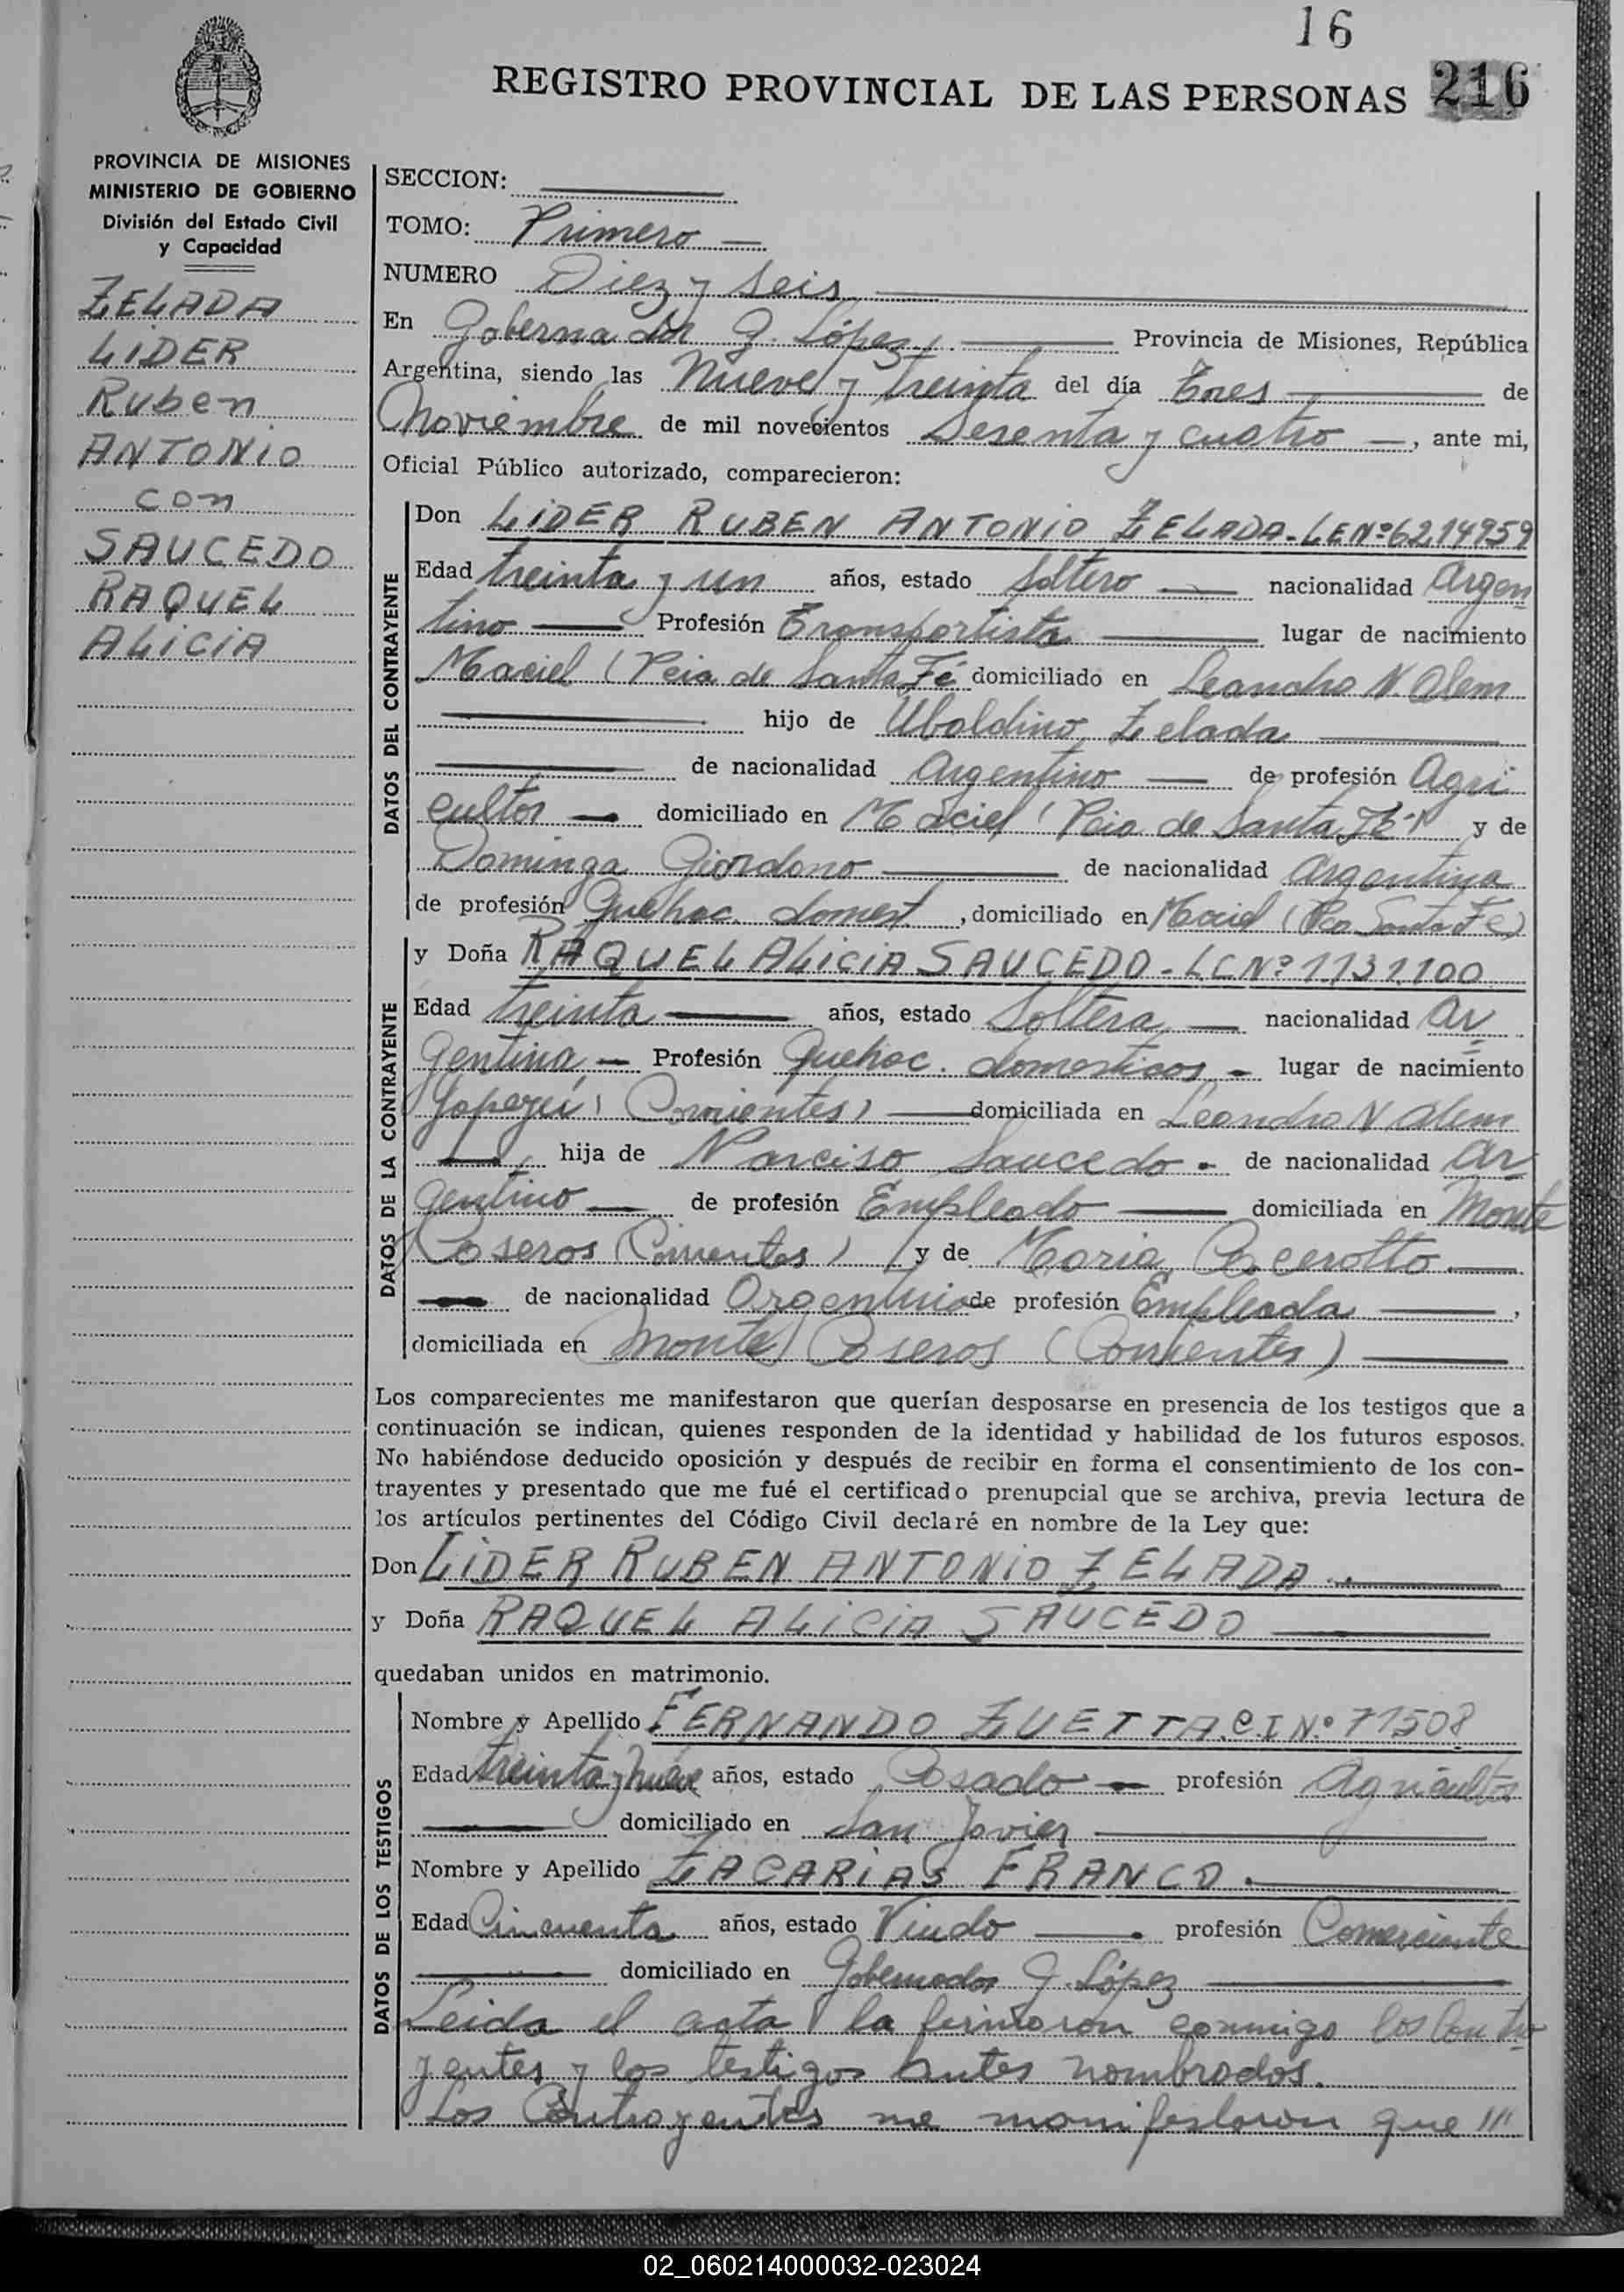 16
REGISTRO PROVINCIAL DE LAS PERSONAS 216
PROVINCIA DE MISIONES
MINISTERIO DE GOBIERNO
División del Estado Civil
y Capacidad
ZELADA
LIDER
Ruben
ANTONIO
con
SAUCEDO
RAQUEL
ALICIA
SECCION:
TOMO: Primero
NUMERO Diez y Seis
En Gobernador J. López Provincia de Misiones, República
Argentina, siendo las Nueve y treinta del día Tres de
Noviembre de mil novecientos Sesenta y cuatro, ante mi,
Oficial Público autorizado, comparecieron:
DATOS DEL CONTRAYENTE
Don LIDER RUBEN ANTONIO ZELADA-LENº6214959
Edad treinta y un años, estado Soltero nacionalidad Argen
tino Profesión Transportista lugar de nacimiento
Maciel (Pcia de Santa Fé domiciliado en Leandro N. Alem
hijo de Ubaldino Zelada
de nacionalidad Argentino de profesión Agri
cultor domiciliado en Maciel (Pcia de Santa Fé) y de
Dominga Giordano de nacionalidad Argentina
de profesión Quehac. domest., domiciliado en Maciel (Pcia Santa Fe)
DATOS DE LA CONTRAYENTE
y Doña RAQUEL ALICIA SAUCEDO-LCNº1131100
Edad treinta años, estado Soltera nacionalidad Ar
gentina Profesión Quehac. domesticos lugar de nacimiento
Yapeyú (Corrientes) domiciliada en Leandro N Alem
hija de Narciso Saucedo de nacionalidad Ar
gentino de profesión Empleado domiciliada en Monte
Caseros (Corrientes) y de Maria
de nacionalidad Argentina de profesión Empleada,
domiciliada en Monte Caseros (Corrientes)
Los comparecientes me manifestaron que querían desposarse en presencia de los testigos que a
continuación se indican, quienes responden de la identidad y habilidad de los futuros esposos.
No habiéndose deducido oposición y después de recibir en forma el consentimiento de los con-
trayentes y presentado que me fué el certificado prenupcial que se archiva, previa lectura de
los artículos pertinentes del Código Civil declaré en nombre de la Ley que:
Don LIDER RUBEN ANTONIO ZELADA
y Doña RAQUEL ALICIA SAUCEDO
quedaban unidos en matrimonio.
DATOS DE LOS TESTIGOS
Nombre y Apellido FERNANDO ZUETTA.C.I Nº 71508
Edad treinta y nueve años, estado Casado profesión Agricultor
domiciliado en San Javier
Nombre y Apellido ZACARIAS FRANCO
Edad Cincuenta años, estado Viudo profesión Comerciante
domiciliado en Gobernador J. López
Leida el acta la firmaron conmigo los Contra
yentes y los testigos antes nombrados.
Los Contrayentes me manifestaron que ///
02_060214000032-023024